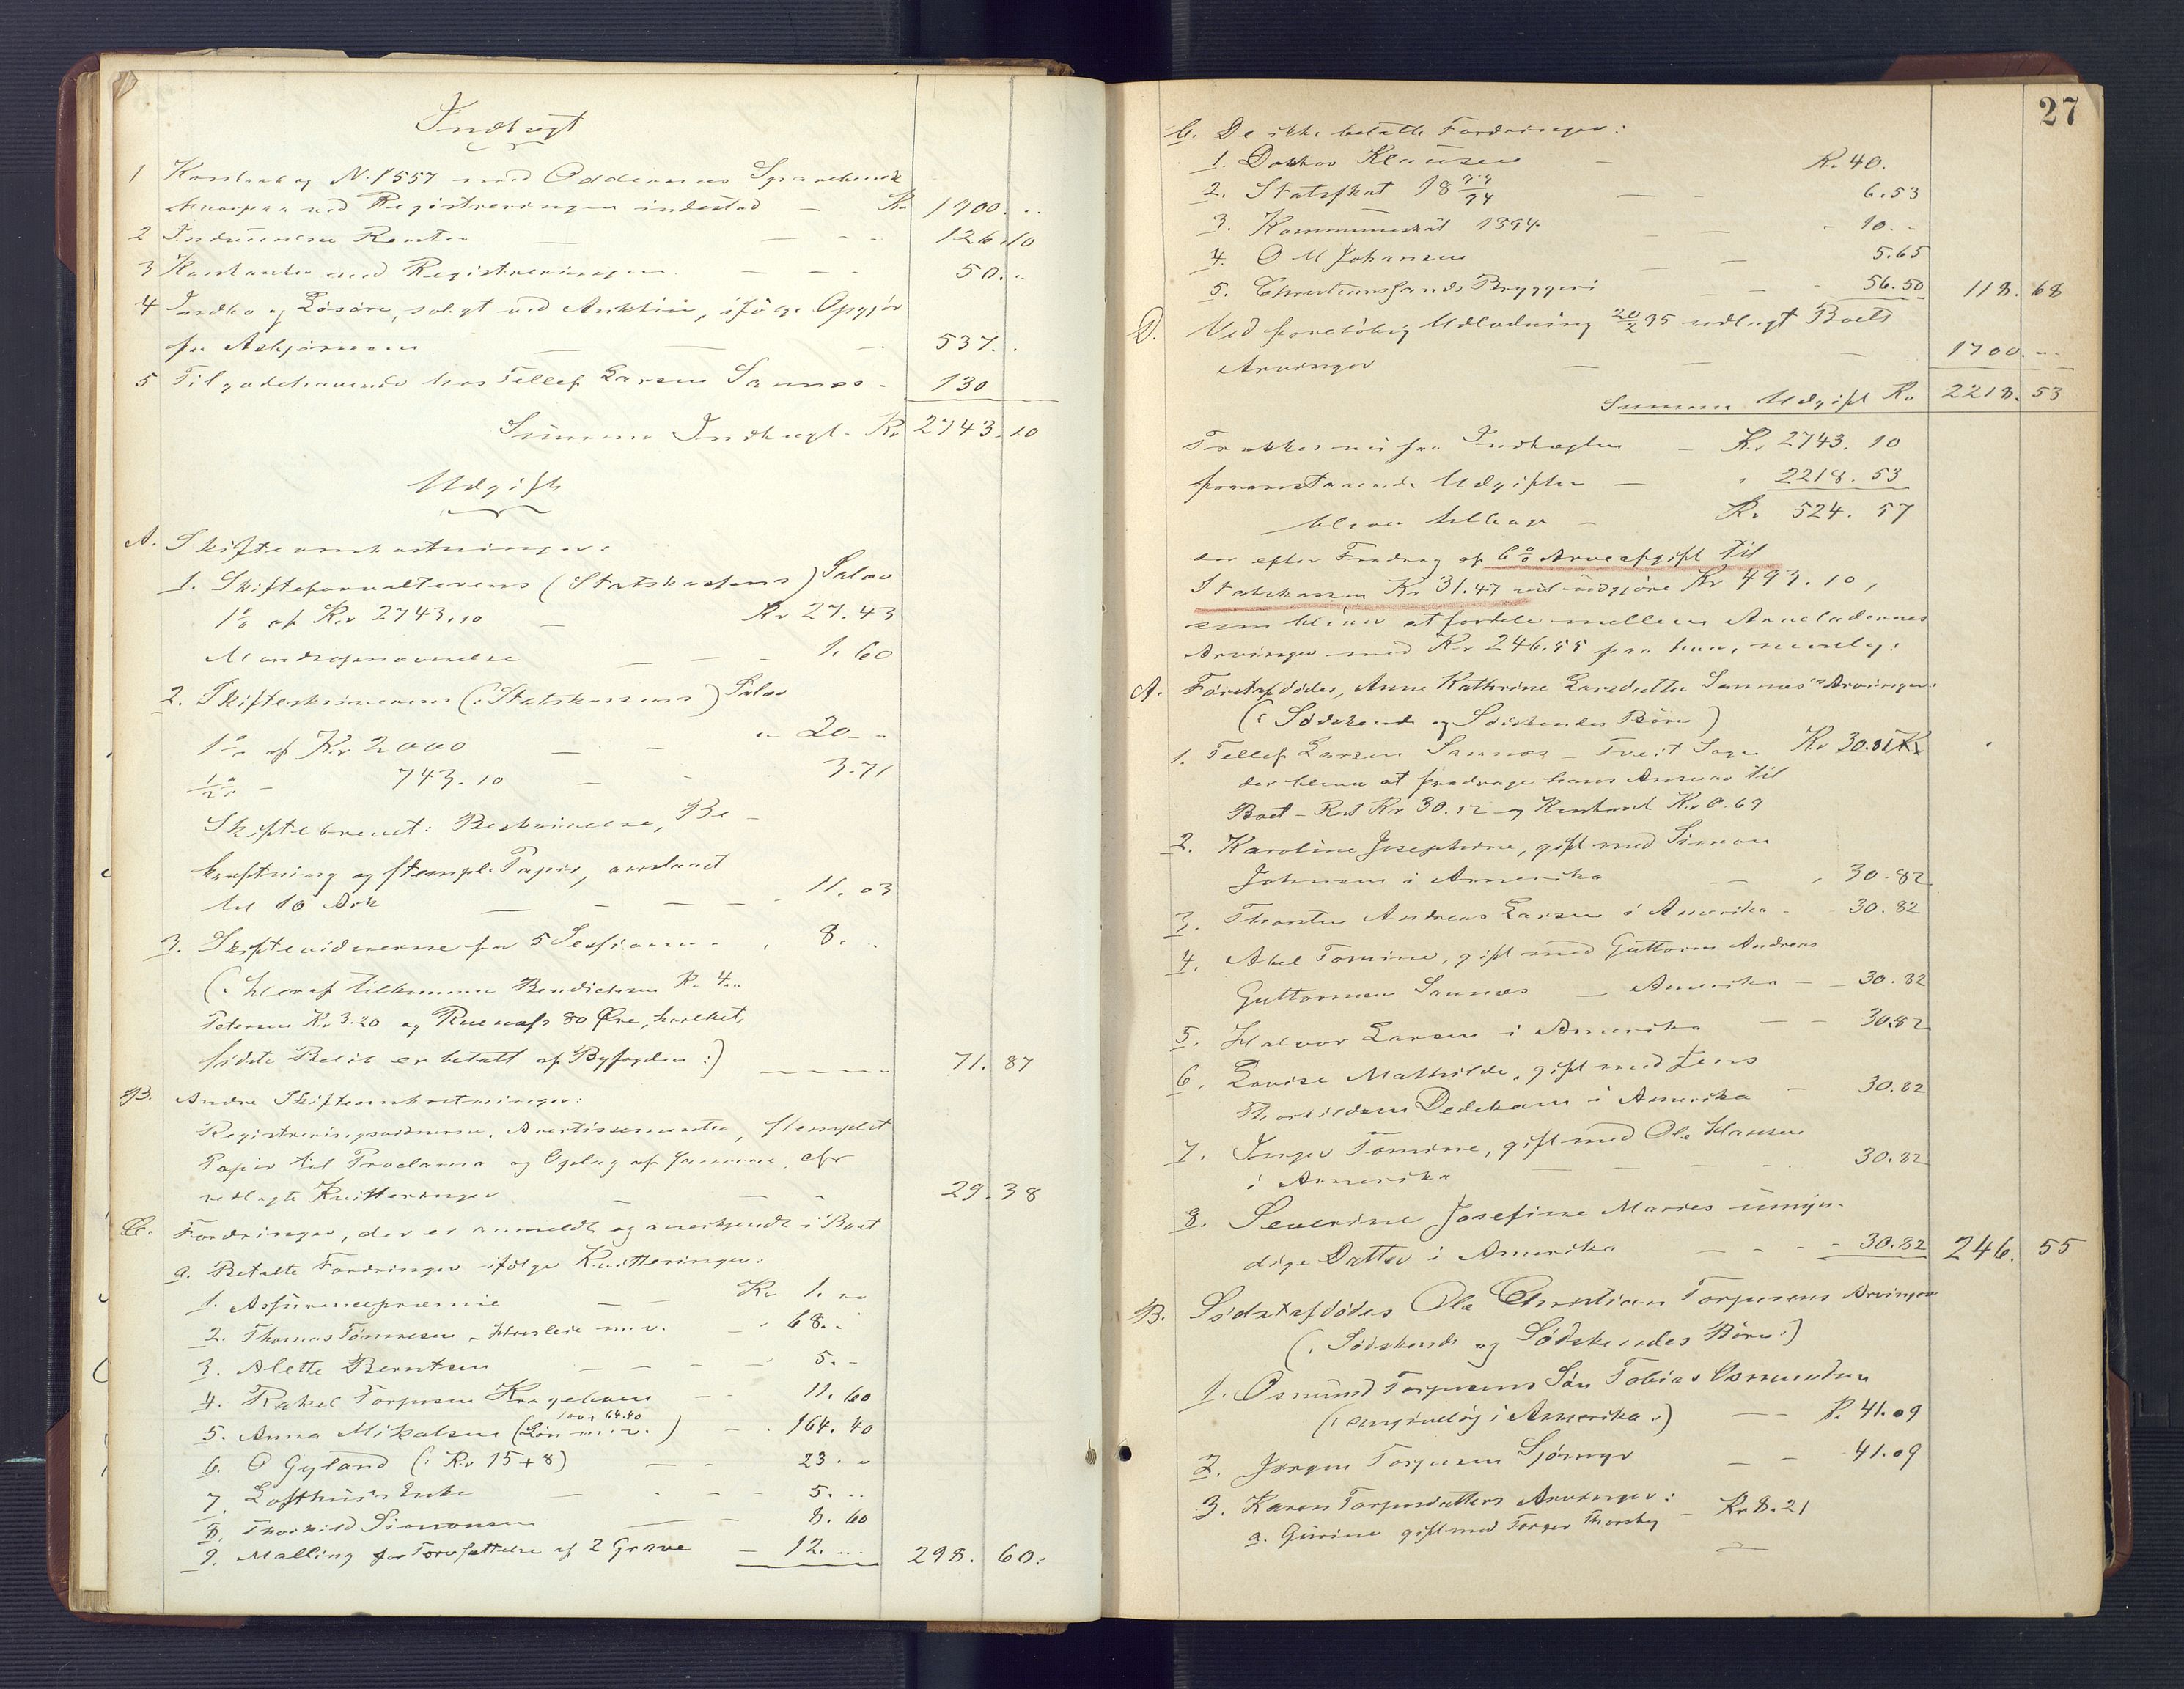 Indtægt
1 Kontrabog N. 1557 med Oddernes Sparebank
hvorpaa ved Registreringen indestod — Kr 1900. ..
2 Indvundne Renter — — - - 126. 10
3 Kontanter ved Registreringen — — - 50. ..
4 Indbo og Løsøre, solgt ved Auktion, ifølge Opgjør
fra Asbjørnsen — — - 537. .
5 Tilgodehavende hos Tellef Larsen Sannes - 130
Summa Indtægt - Kr 2743. 10
Udgift
A. Skifteomkostninger:
1. Skifteforvalterens (Statskassens) Salær
1% af Kr 2743.10 — Kr 27.43
Mandsopnævnelse — — - 1.60
2. Skifteskriverens (: Statskassens) Salær
1% af Kr 2000 — - " 20 - -
½% - 743.10 — - 3.71
Skiftebrevet: Beskrivelse, Be-
kræftning og stemplt Papir, anslaaet
til 10 Ark — - — - 11.03
3. Skiftevidnerne for 5 Sessioner - , 8. -
(: Heraf tilkommer Bendichsen Kr 4..
Petersen Kr 3.20 og 80 Øre, hvilket
sidste Beløb er betalt af Byfogden :) — — — 71. 87
B. Andre Skifteomkostninger:
Registreringsvidnerne, Avertissementer, stemplet
Papir til Proclama og Oplag af samme, efter
vedlagte Kvitteringer — — - 29. 38
C. Fordringer, der er anmeldt og anerkjendt i Boet
a. Betalte Fordringer ifølge Kvitteringer:
1. Assurancepræmie — — Kr 1. ..
2. Thomas Tønnesen - Husleie m.v. — 68. -
3. Alette Berntsen — — — 5. -
4. Rakel Torgusen Krageboen — - 11.60
5. Anna Mikalsen (Løn m.v. 100 + 64.40) - . 164.40
6. O Gyland (: Kr 15 + 8) — - 23. ..
7. Lofthus's Enke — . - - 5. ..
8. Thorkild Simonsen — - 8. 60
9. Malling for Torvsættelse af 2 Grave — 12. ... 298. 60.
27
b. De ikke betalte Fordringer:
1. Doktor Klausen — Kr 40.
2. Statsskat 18 93/94 — - 6.53
3. Kommuneskat 1894 — — - 10. -
4. O M Johansen — 5.65
5. Christianssands Bryggeri — - - 56.50 118. 68
D. Ved foreløbig Udlodning 20/2 95 udlagt Boets
Arvinger — — 1700. ..
Summa Udgift Kr 2218. 53
Trækkes nu fra Indtægten — Kr 2743. 10
foranstaaende Udgifter — " 2218. 53
bliver tilbage — Kr 524. 57
der efter Fradrag af 6% Arveafgift til
Statskassen Kr 31.47 vil udgjøre Kr 493.10,
som bliver at fordele mellem Arveladernes
Arvinger med Kr 246.55 paa hver, nemlig:
A. Førstafdødes, Anne Kathrine Larsdatter Sannes' Arvinger:
(: Sødskende og Sødskendes Børn)
1. Tellef Larsen Sannes — Tveit Sogn Kr 30.81 Kr
der bliver at fradrage hans Ansvar til
Boet - Rest Kr 30.12 og Kontant Kr 0.69
2. Karoline Josephine, gift med Simon
Johnsen i Amerika — , 30.82
3. Thorsten Andreas Larsen i Amerika - - 30.82
4. Abel Tomine, gift med Guttorm Andreas
Guttormsen Sannes — Amerika - - 30.82
5. Halvor Larsen i Amerika — - 30.82
6. Lovise Mathilde, gift med Jens
Thorkildsen Dedekam i Amerika — 30.82
7. Inger Tomine, gift med Ole Hansen
i Amerika — — - - 30.82
8. Severine Josefine Maries umyn-
dige Datter i Amerika — - - - 30.82 246. 55
B. Sidstafdødes Ole Christian Torgusens Arvinger
(: Sødskende og Sødskendes Børn :)
1. Osmund Torgusens Søn Tobias Osmundsen
(: angivelig i Amerika :) — Kr 41.09
2. Jørgen Torgusen — - 41.09
3. Karen Torgusdatters Arvinger:
a. Gurine gift med Torger - Kr 8.21